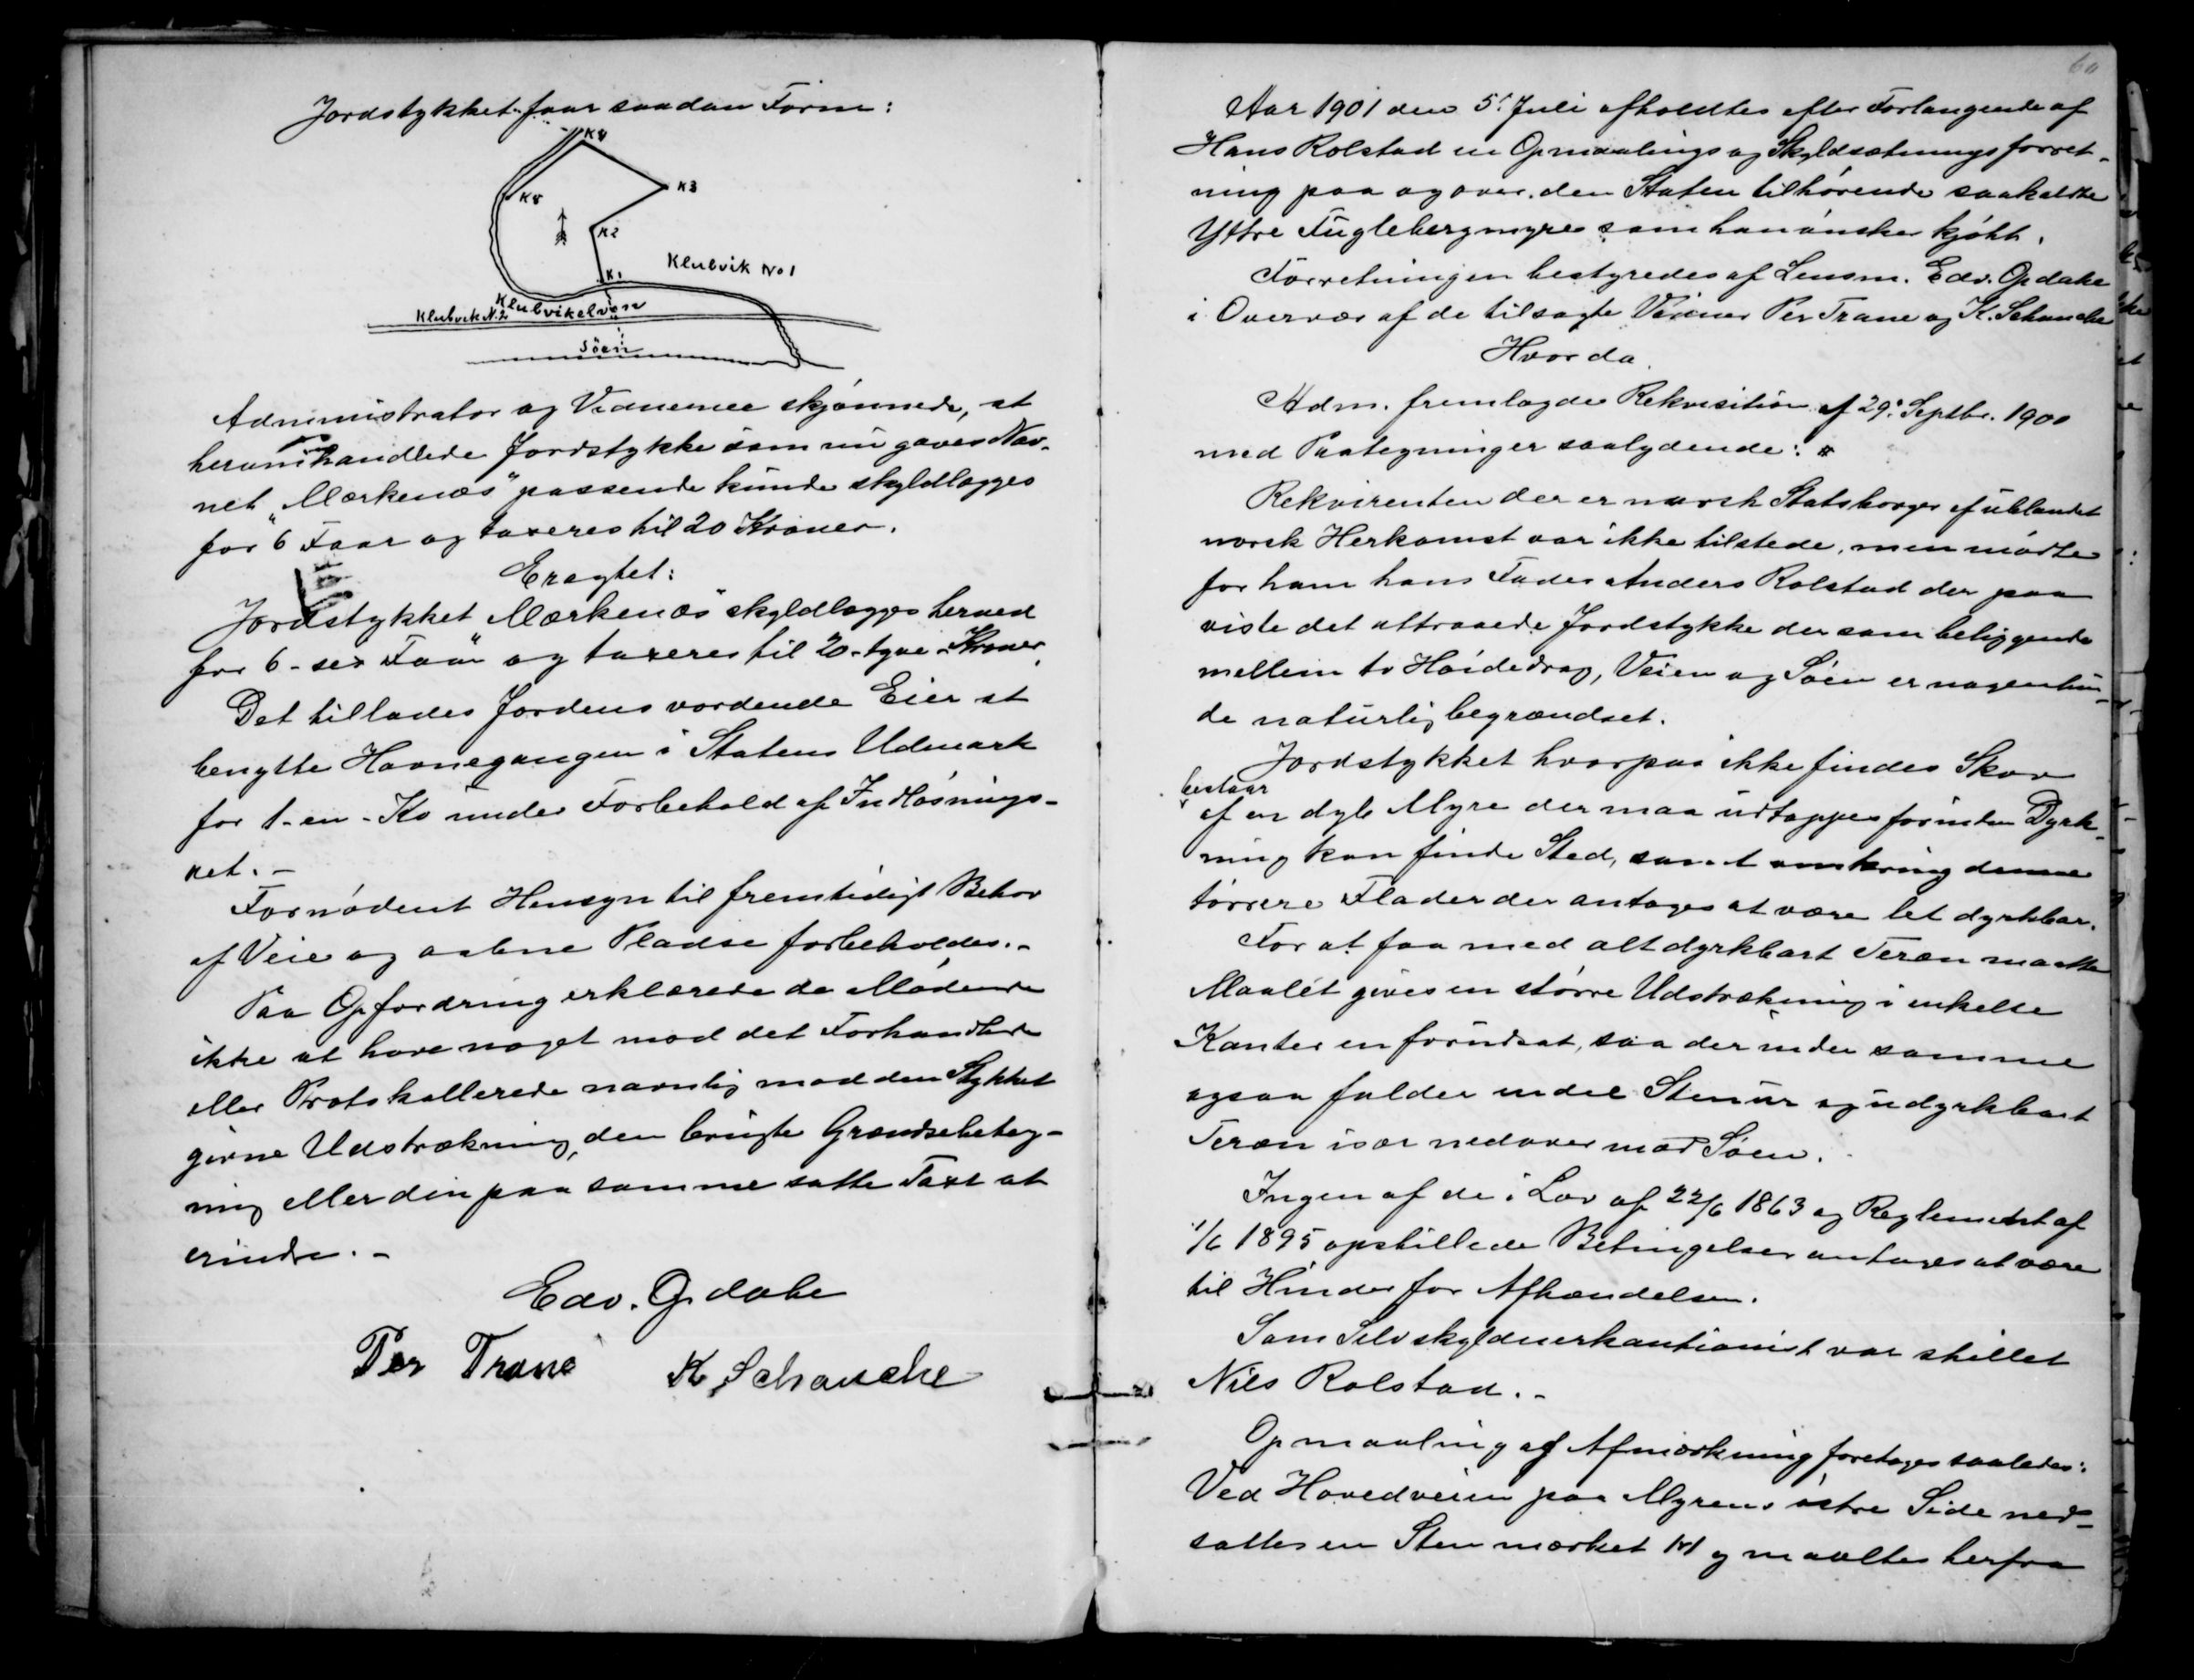 Jordstykket faar saadan Form:
K4
K3
K5
K2
K1
Klubvik No 1
Klubvik N. 2
Klubvikelven
Söen
Administrator og Vidnerne skjønnede, at
heromhandlede Jordstykke som nu gaves Nav-
net "Mærkenæs" passende kunde skyldlægges
for 6 Favn og taxeres til 20 Kroner.
Eragtet:
Jordstykket "Mærkenæs" skyldlægges herved
for 6 - sex Favn og taxeres til 20 - tyve - Kroner.
Det tillades Jordens vordende Eier at
benytte Havnegangen i Statens Udmark
for 1 - en - Ko under Forbehold af Indløsnings-
ret. -
Fornødent Hensyn til fremtidigt Behov
af Veie og aabne Pladse forbeholdes. -
Paa Opfordring erklærede de Mødende
ikke at have noget mod det Forhandlede
eller Protokollerede navnlig mod den Stykket
givne Udstrækning, den brugte Grændsebeteg-
ning eller den paa samme satte Taxt at
erindre. -
Edv. Opdahe
Per Trane K. Schanche
60
Aar 1901 den 5. Juli afholdtes efter Forlangende af
Hans Rolstad en Opmaalings og Skyldsætningsforret-
ning paa og over den Staten tilhørende saakaldte
Yttre Fuglebergmyre som han ønsker kjøbt.
Forretningen bestyredes af Lensm. Edv. Opdahe
i Overvær af de tilsagte Vidner Per Trane og K. Schanche
Hvorda
Adm. fremlagde Rekvisition af 29. Septbr. 1900
med Paategninger saalydende: #
Rekvirenten der er norsk Statsborger af ublandet
norsk Herkomst var ikke tilstede, men mødte
for ham hans Fader Anders Rolstad der paa
viste det attraaede Jordstykke der som beliggende
mellem to Høidedrag, Veien og Søen er nogenlun-
de naturlig begrændset.
Jordstykket hvorpaa ikke findes Skov
bestaar
af en dyb Myre der maa udtappes forinden Dyrk-
ning kan finde Sted, samt omkring denne
tørrere Flader der antages at være let dyrkbar.
For at faa med alt dyrkbart Teræn maatte
Maalet gives en større Udstrækning i enkelte
Kanter en forudsat, saa der under samme
ogsaa falder endel Stenur og udyrkbart
Teræn især nedover mod Søen.
Ingen af de i Lov af 22/6 1863 og Reglementet af
1/6 1895 opstillede Betingelser antages at være
til Hinder for Afhændelsen.
Som Selvskyldnerkautionist var stillet
Nils Rolstad. -
Opmaaling og Afmærkning foretoges saaledes:
Ved Hovedveien paa Myrens østre Side ned-
sattes en Sten mærket K1 og maaltes herfra